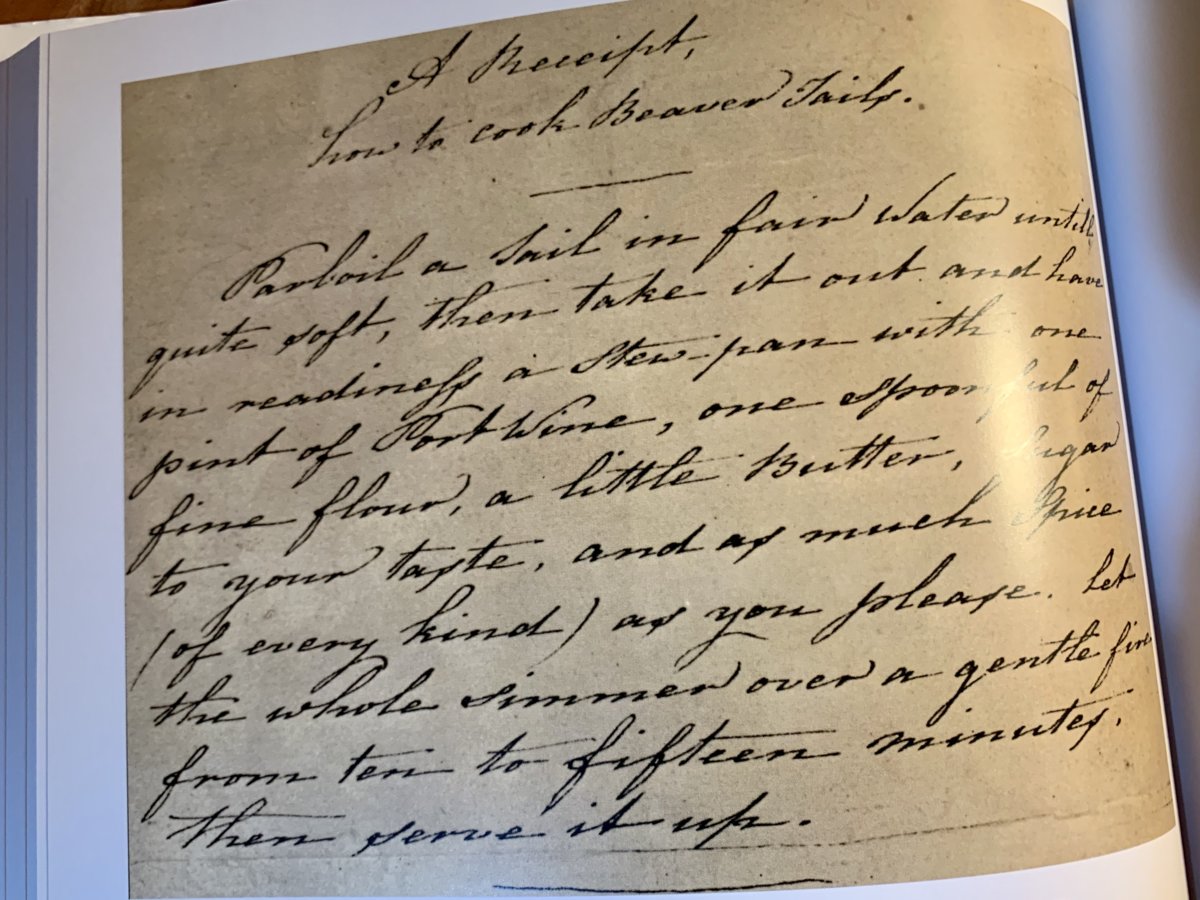 A Receipt,
how to cook Beaver Tails.
Parboil a Tail in fair Water untill
quite soft, then take it out and have
in readiness a Stew-pan with one
pint of Port Wine, one spoonful of
fine flour, a little Butter, Sugar
to your taste, and as much Spice
(of every kind) as you please. Let
the whole simmer over a gentle fire
from ten to fifteen minutes.
then serve it up.